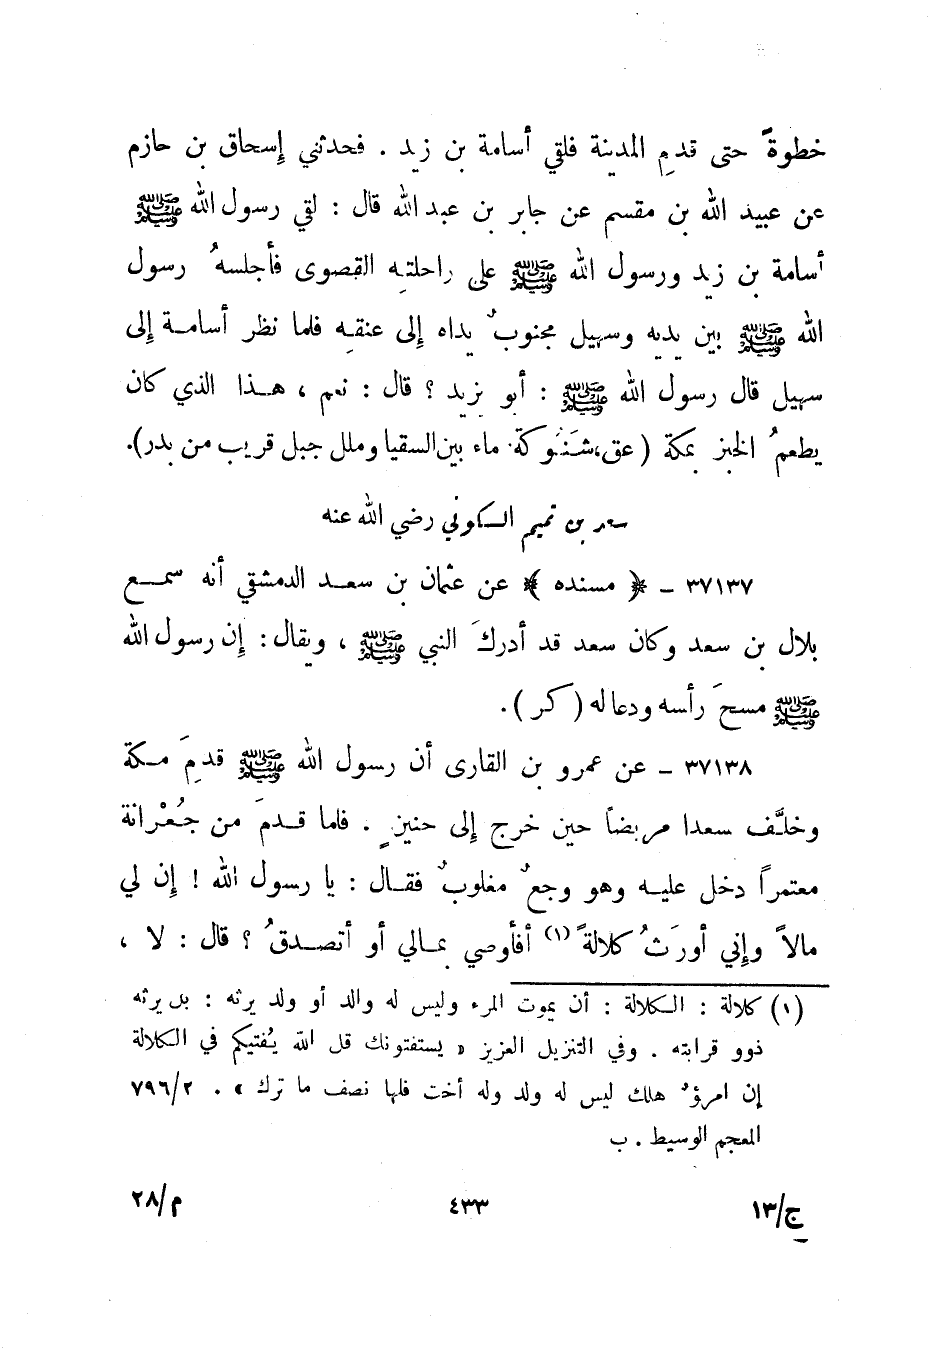 خطوةً حتى قدمِ المدينة فلقي أسامة بن زيد . فحدثني إسحاق بن حازم
عن عبيد الله بن مقسم عن جابر بن عبد الله قال : لقي رسول الله ﷺ
أسامة بن زيد ورسول الله ﷺ على راحلته القصوى فأجلسهُ رسول
الله ﷺ بين يديه وسهيل مجنوبٌ يداه إلى عنقه فلما نظر أسامة إلى
سهيل قال رسول الله ﷺ : أبو يزيد ؟ قال : نعم ، هذا الذي كان
يطعمُ الخبز بمكة ( عق،شَنُوكة ماء بين السقيا وملل جبل قريب من بدر).
سعد بن تميم السكوني رضي الله عنه
٣٧١٣٧ - ﴿ مسنده ﴾ عن عثمان بن سعد الدمشقي أنه سمع
بلال بن سعد وكان سعد قد أدركَ النبي ﷺ ، ويقال : إن رسول الله
ﷺ مسحَ رأسه ودعا له ( كر ) .
٣٧١٣٨ - عن عمرو بن القارى أن رسول الله ﷺ قدمِ مكة
وخلَّف سعدا مريضاً حين خرج إلى حنينٍ . فلما قدمَ من جُعْرانة
معتمراً دخل عليه وهو وجعٌ مغلوبٌ فقال : يا رسول الله ! إن لي
مالاً وإني أورَثُ كلالةً (١) أفأوصي بمالي أو أتصدقُ ؟ قال : لا ،
(١) كلالة : الكلالة : أن يموت المرء وليس له والد أو ولد يرثه : بل يرثه
ذوو قرابته . وفي التنزيل العزيز « يستفتونك قل الله يُفتيكم في الكلالة
إن امرؤٌ هلك ليس له ولد وله أخت فلها نصف ما ترك » . ٧٩٦/٢
المعجم الوسيط . ب
ج/١٣ ٤٣٣ م/٢٨